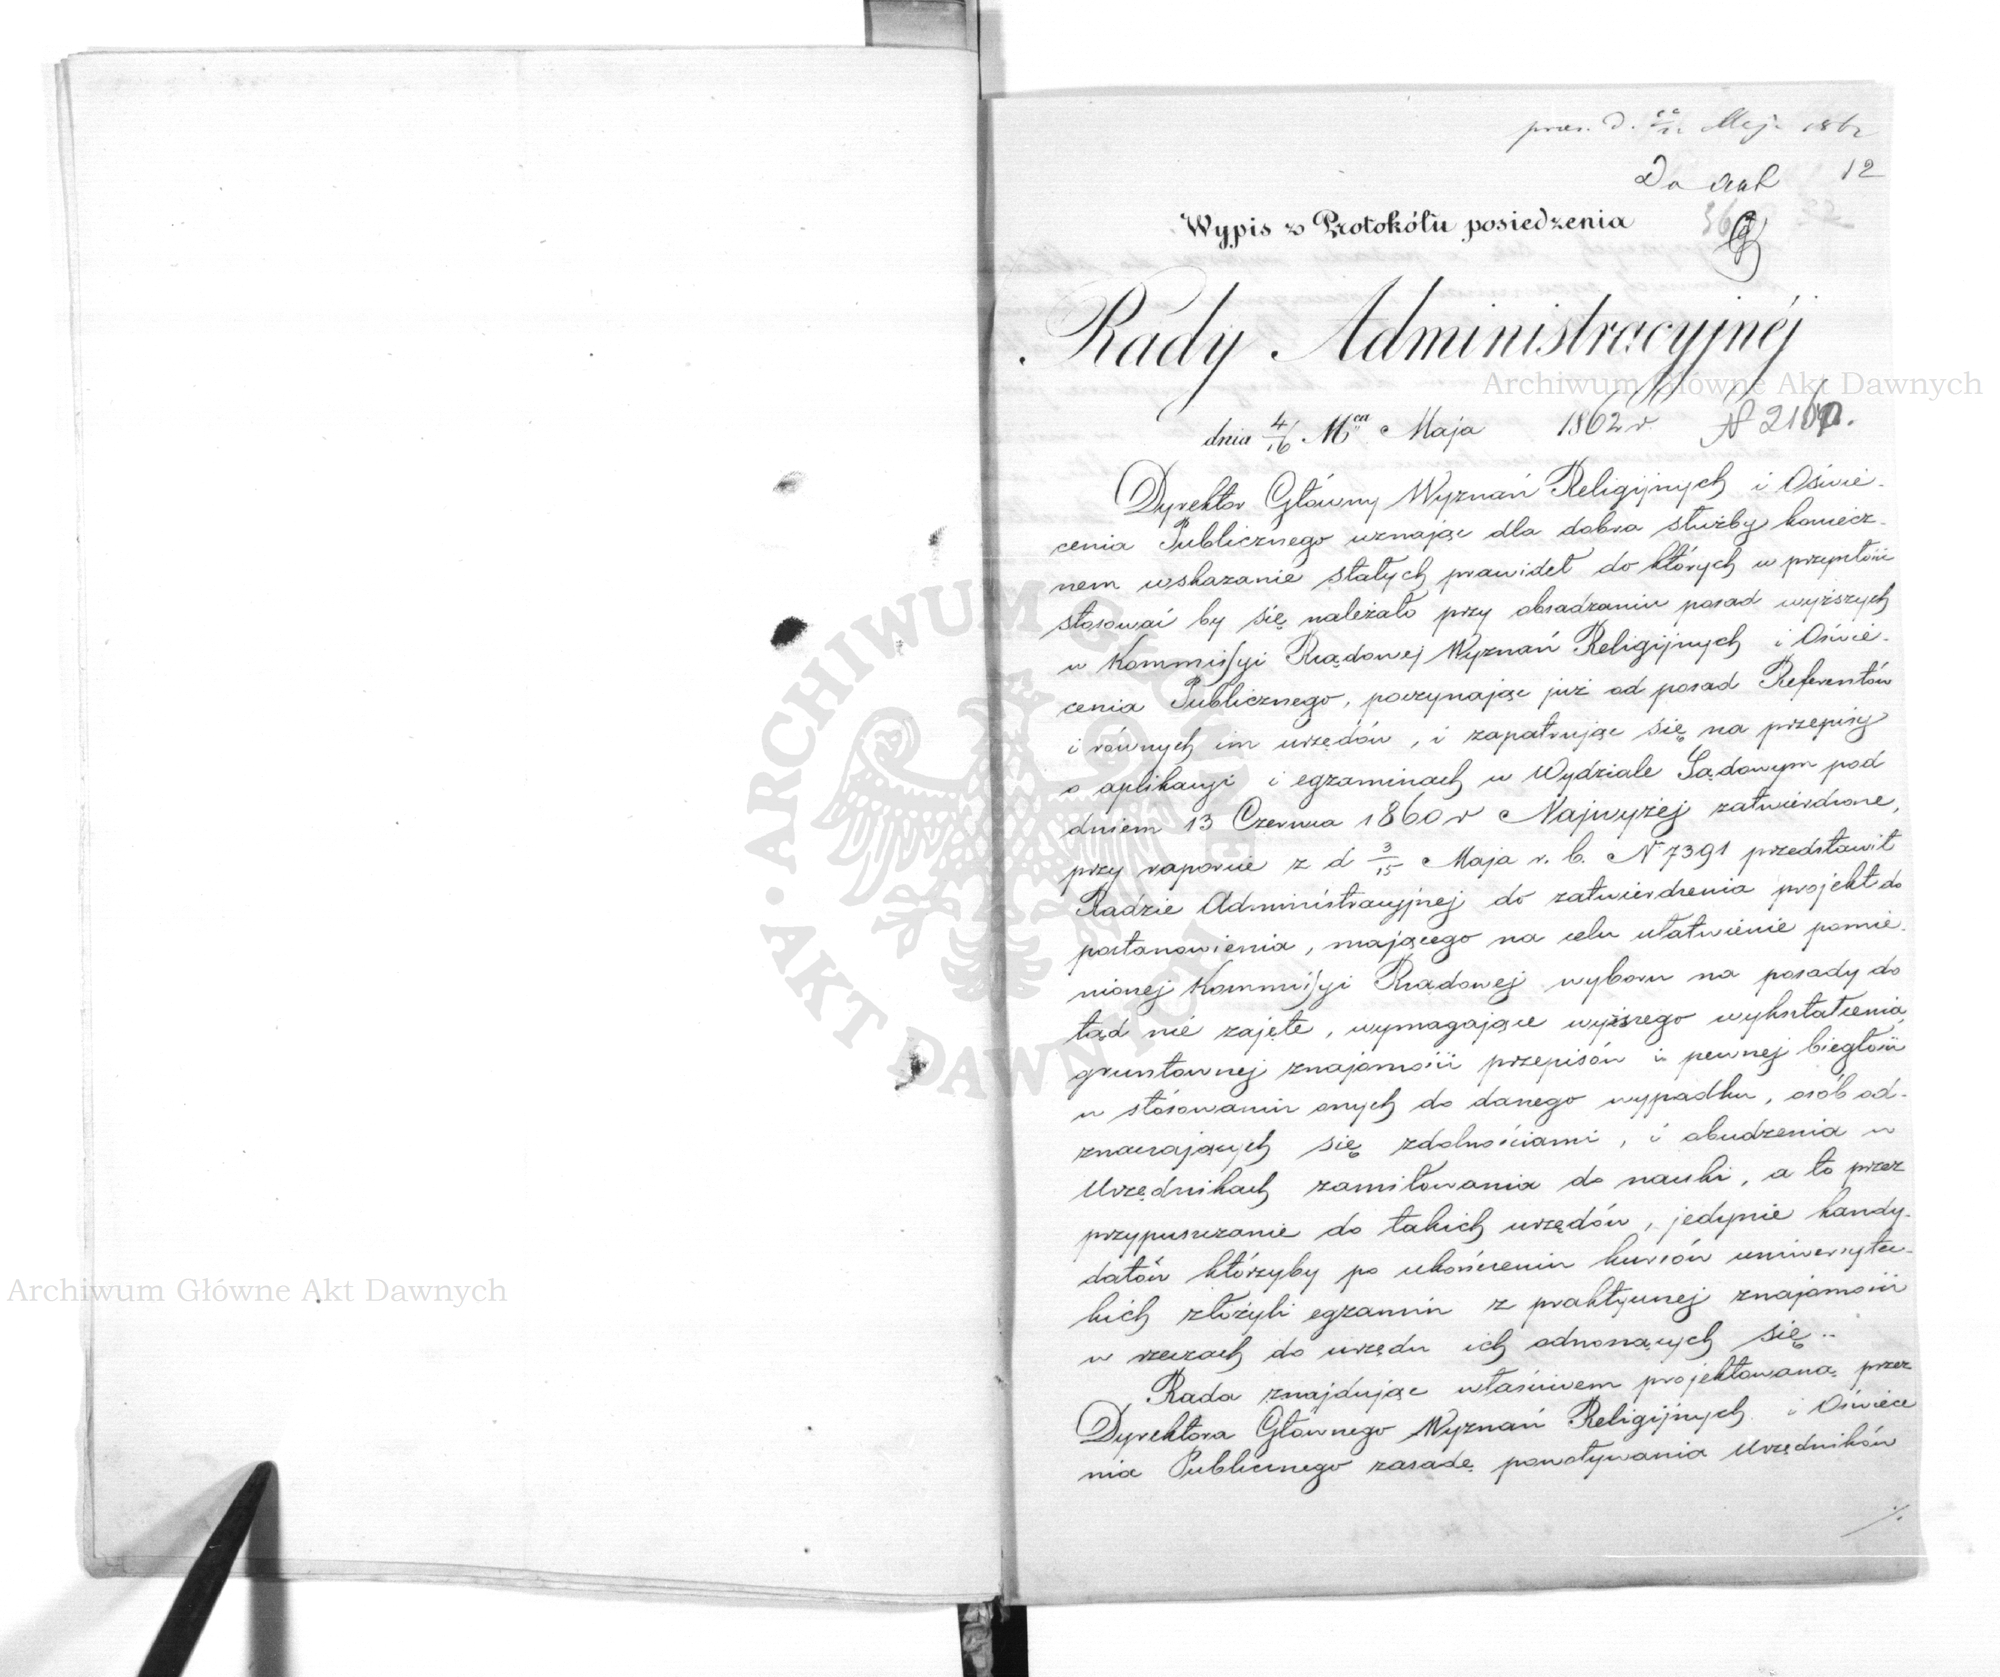 prez. d. Maja 1862
Do akt 12
36
Wypis z Protokółu posiedzenia
Rady Administracyjnéj
Archiwum Główne Akt Dawnych
dnia 4/16 Mca Maja 1862 r. N
Dyrektor Główny Wyznań Religijnych i Oświe-
cenia Publicznego uznając dla dobra służby koniecz-
nem wskazanie stałych prawideł do których w przyszłości
stosować by się należało przy obsadzaniu posad wyższych
w Kommissyi Rządowej Wyznań Religijnych i Oświe-
cenia Publicznego, poczynając już od posad Referentów
i równych im urzędów, i zapatrując się na przepisy
o aplikacyi i egzaminach w Wydziale Sądowym pod
dniem 13 Czerwca 1860 r Najwyżej zatwierdzone,
przy raporcie z d 3/15 Maja r. b. N 7391 przedstawił
Radzie Administracyjnej do zatwierdzenia projekt do
postanowienia, mającego na celu ułatwienie pomie-
nionej Kommissyi Rządowej wyboru na posady do
tąd nie zajęte, wymagające wyższego wykształcenia,
gruntownej znajomości przepisów i pewnej biegłości
w stósowaniu onych do danego wypadku, osób od-
znaczających się zdolnościami, i obudzenia w
Urzędnikach zamiłowania do nauki, a to przez
przypuszczanie do takich urzędów, jedynie kandy-
datów którzyby po ukończeniu kursów uniwersytec-
kich złożyli egzamin z praktycznej znajomości
w rzeczach do urzędu ich odnoszących się.
Rada znajdując właściwem projektowaną przez
Dyrektora Głównego Wyznań Religijnych i Oświece
nia Publicznego zasadę powoływania Urzędników
./.
ARCHIWUM GŁÓWNE AKT DAWNYCH
Archiwum Główne Akt Dawnych